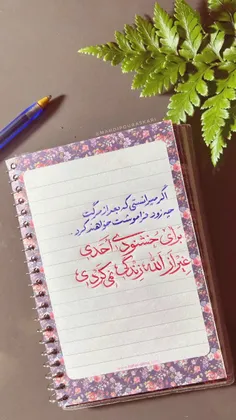 اگر میدانستی که بعد از مرگت
چه زود فراموشت خواهند کرد.
برای خشنودی اَحدی
غیر از الله زندگی نمی‌کردی